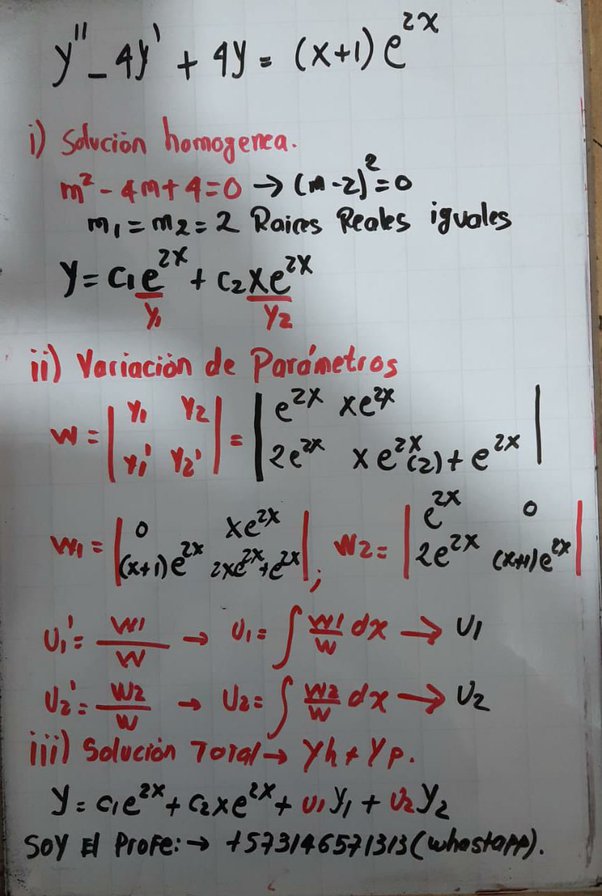 y'' - 4y' + 4y = (x+1) e^{2x}
i) Solución homogenea.
m² - 4m + 4 = 0 → (m-2)² = 0
m₁ = m₂ = 2 Raices Reales iguales
y = c₁e^{2x} + c₂xe^{2x}
y₁ y₂
ii) Variación de Parámetros
w = | y₁ y₂ | = | e^{2x} xe^{2x} |
| y₁' y₂' | | 2e^{2x} xe^{2x}(2) + e^{2x} |
w₁ = | 0 xe^{2x} | ; w₂ = | e^{2x} 0 |
| (x+1)e^{2x} 2xe^{2x}+e^{2x} | | 2e^{2x} (x+1)e^{2x} |
U₁' = w₁/w → U₁ = ∫ w₁/w dx → U₁
U₂' = w₂/w → U₂ = ∫ w₂/w dx → U₂
iii) Solución Total → yh + yp.
y = c₁e^{2x} + c₂xe^{2x} + U₁y₁ + U₂y₂
Soy El Profe: → +573146571313 (whastapp).